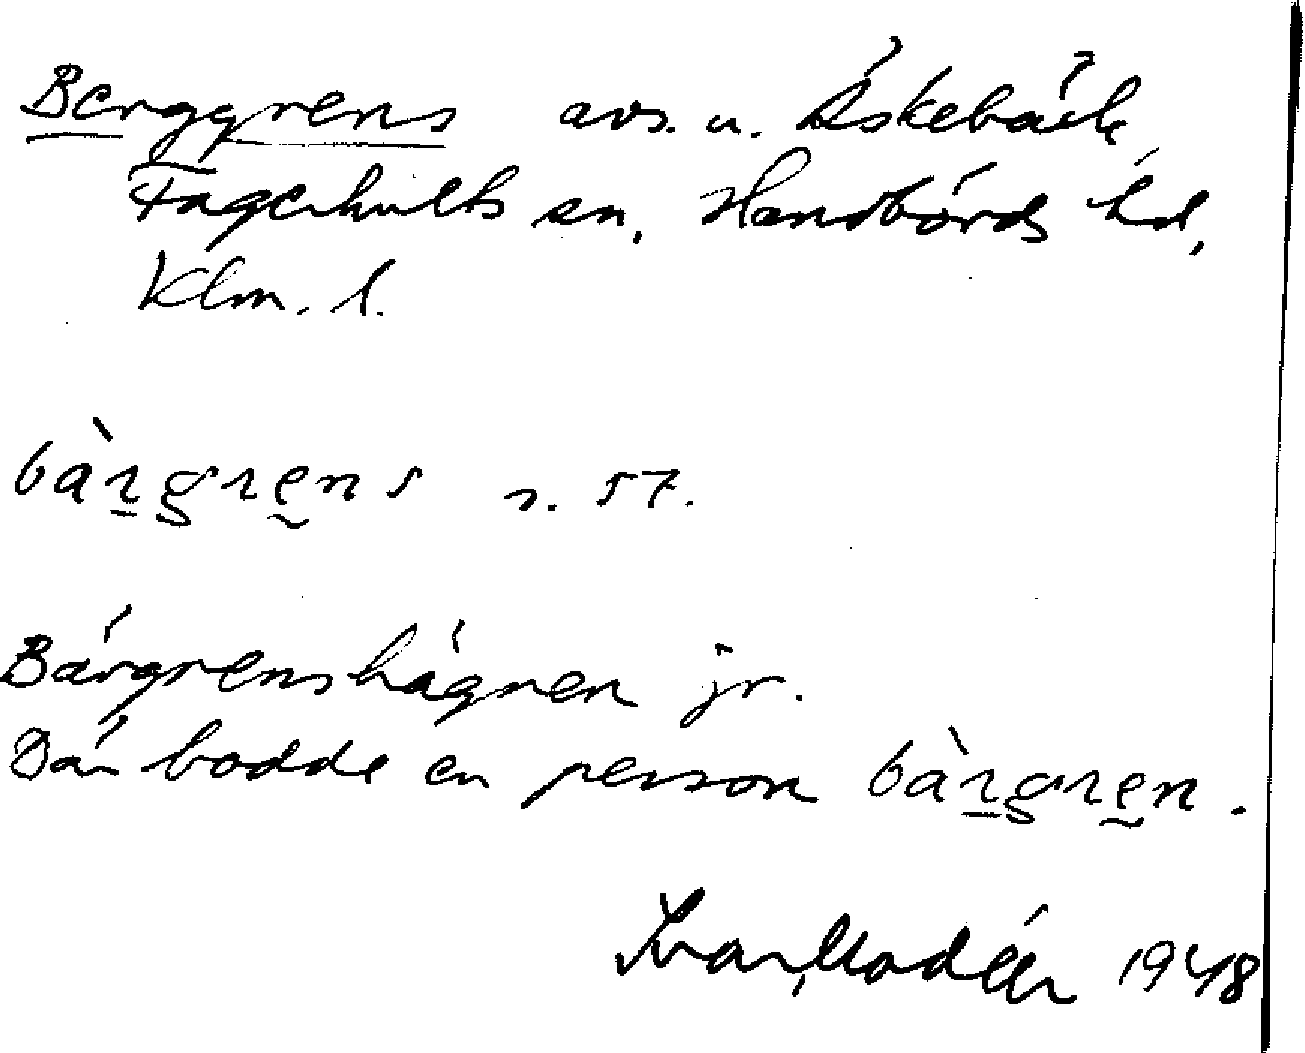 Berggrens avs. u. Äskebäck,
Fagerhults sn, Handbörds hd,
Klm. l.
bàrgrens s. 57.
Bärgrenshägnen jr.
Där bodde en person bàrgren.
Ivar Modéer 1948